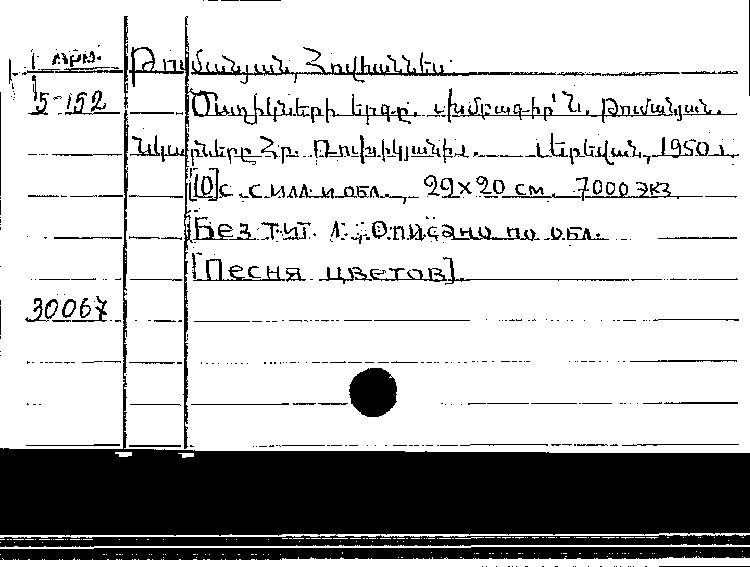 Арм. Թումանյան, Հովհաննես
5-152 Ծաղիկների երգը. Խմբագիր՝ Ն. Թումանյան.
Նկարները Հր. Ռուխիկյանի. Երեվան, 1950 թ.
[10] с. с илл. и обл., 29×20 см. 7000 экз.
Без тит. л. Описано по обл.
[Песня цветов].
30067